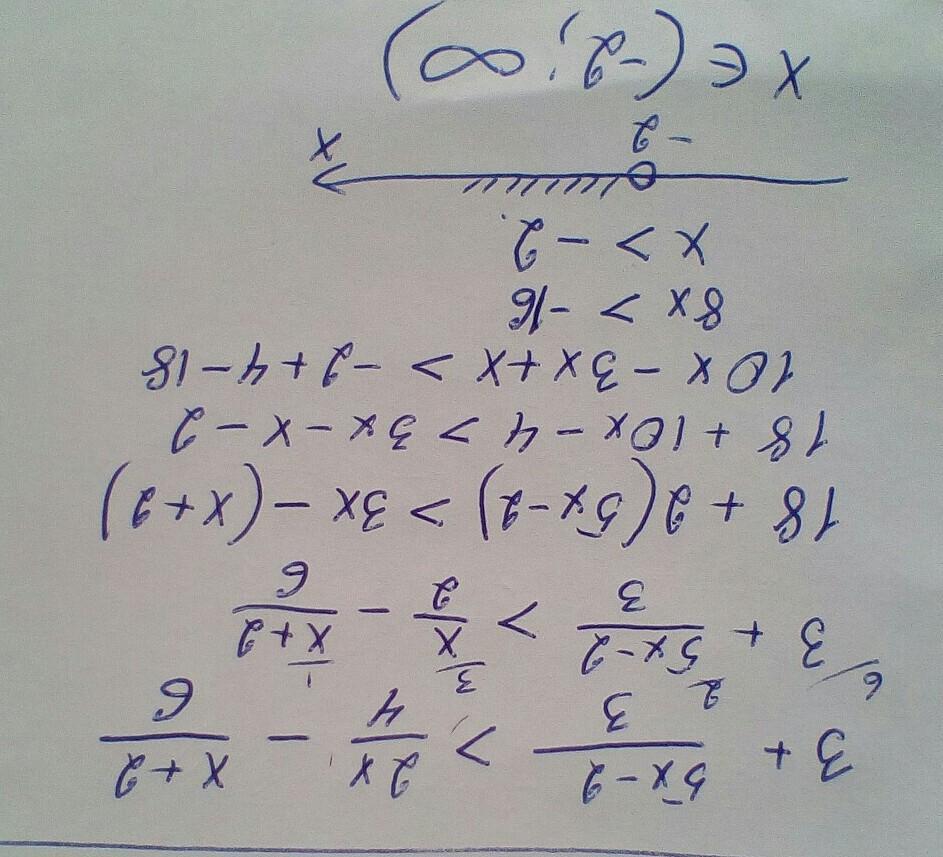 3 + \frac{5x-2}{3} > \frac{2x}{4} - \frac{x+2}{6}
^{6/}3 + \frac{5x-2}{3}^{2} > \frac{x}{2}^{3} - \frac{x+2}{6}^{1}
18 + 2(5x-2) > 3x - (x+2)
18 + 10x - 4 > 3x - x - 2
10x - 3x + x > -2 + 4 - 18
8x > -16
x > -2.
-2 x
x ∈ (-2; ∞)